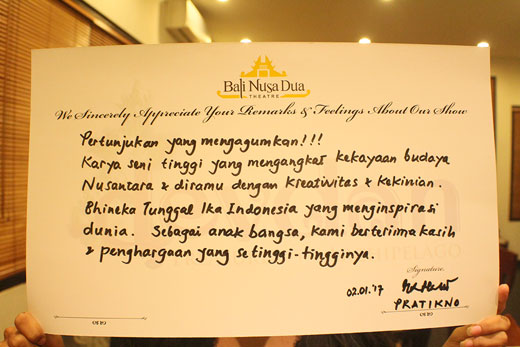 Bali Nusa Dua
THEATRE
We Sincerely Appreciate Your Remarks & Feelings About Our Show
Pertunjukan yang mengagumkan!!!
Karya seni tinggi yang mengangkat kekayaan budaya
Nusantara & diramu dengan kreativitas & kekinian.
Bhineka Tunggal Ika Indonesia yang menginspirasi
dunia. Sebagai anak bangsa, kami berterima kasih
& penghargaan yang setinggi-tingginya.
Signature,
02.01.'17
PRATIKNO